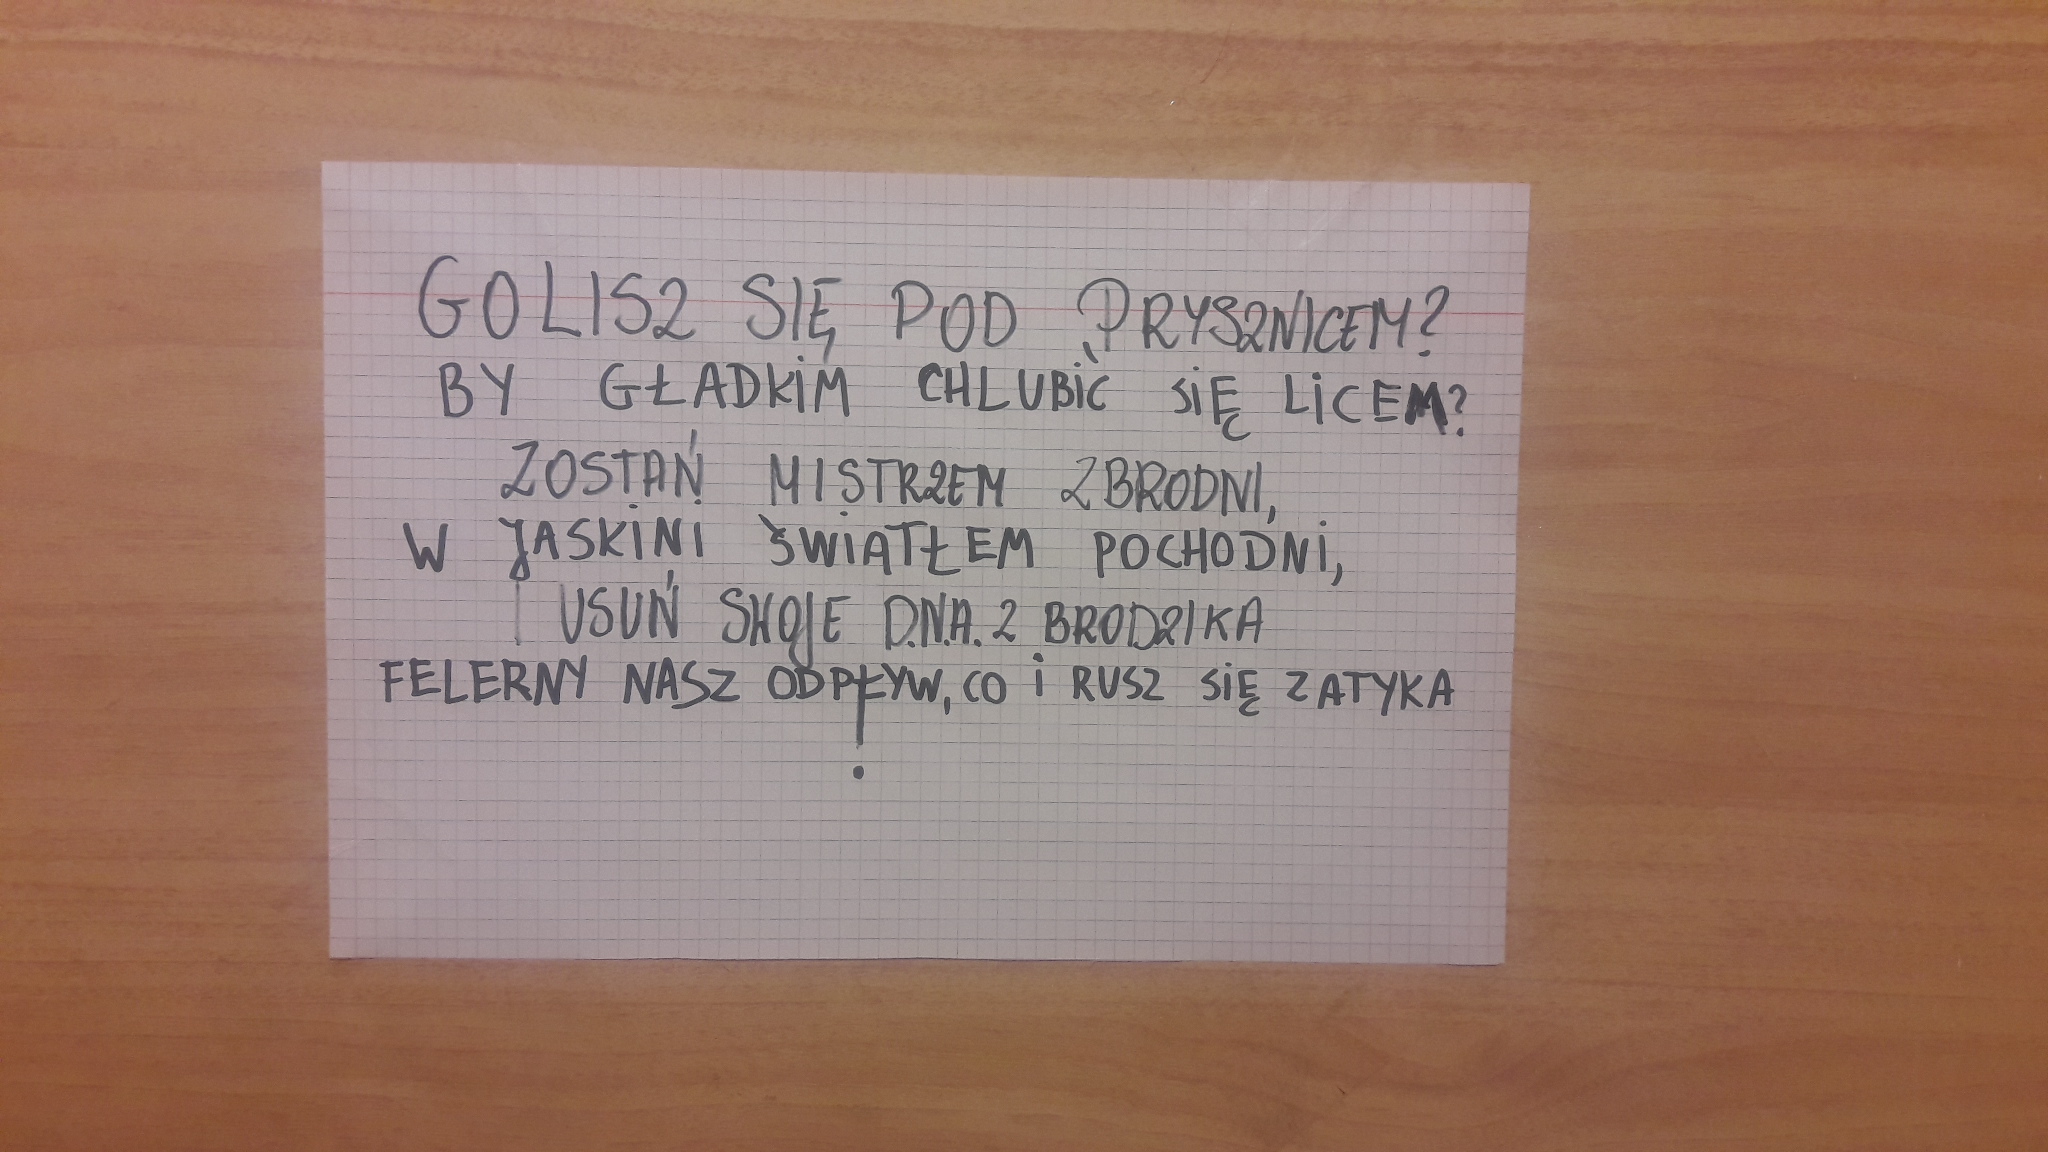 GOLISZ SIĘ POD PRYSZNICEM?
BY GŁADKIM CHLUBIĆ SIĘ LICEM?
ZOSTAŃ MISTRZEM ZBRODNI,
W JASKINI ŚWIATŁEM POCHODNI,
USUŃ SWOJE D.N.A. Z BRODZIKA
FELERNY NASZ ODPŁYW, CO I RUSZ SIĘ ZATYKA
!